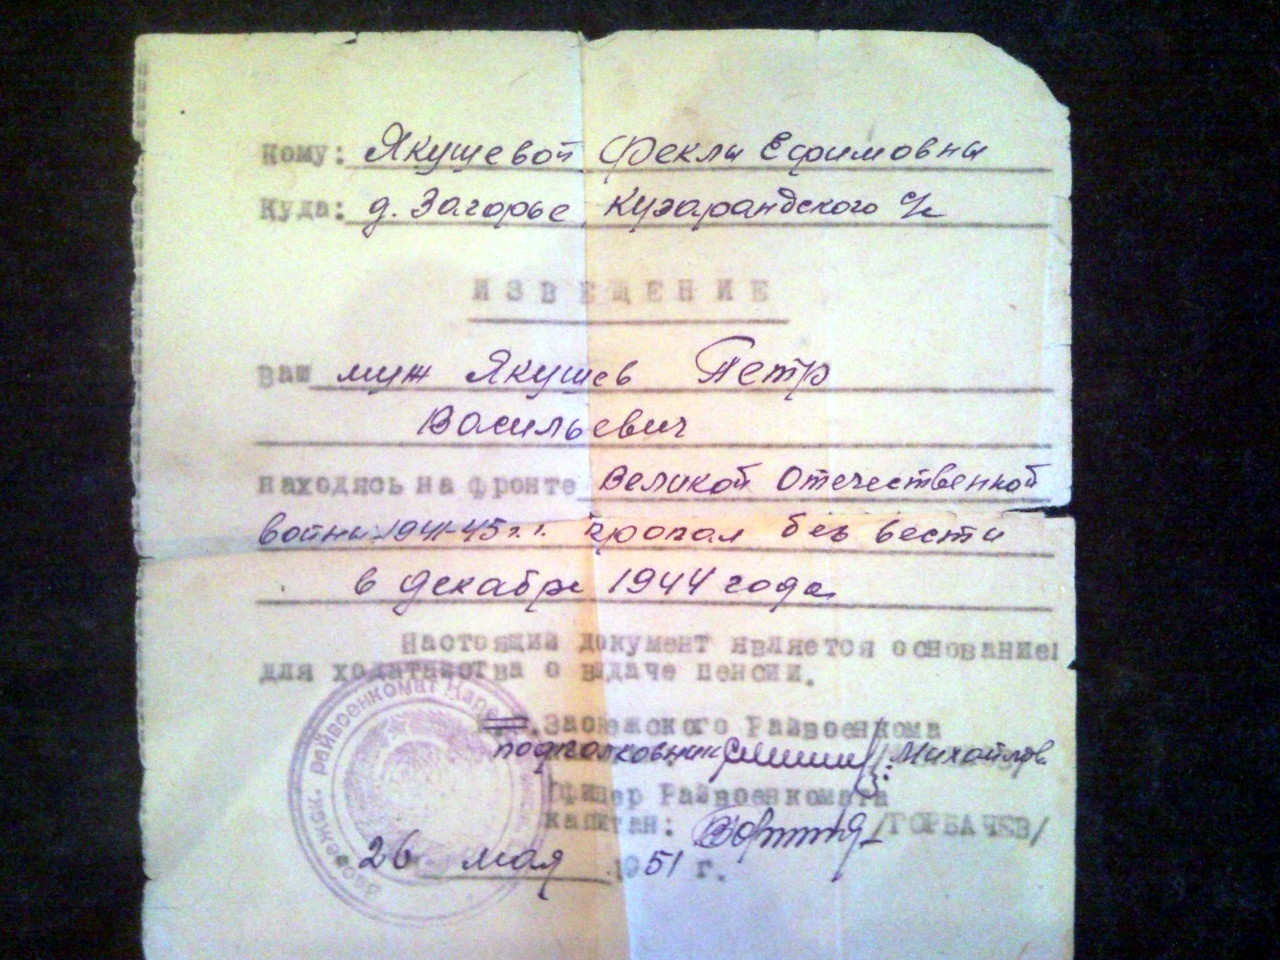 Кому: Якушевой Фекла Ефимовны
Куда: д. Загорье Кузарандского с/с
ИЗВЕЩЕНИЕ
Ваш муж Якушев Петр
Васильевич
находясь на фронте Великой Отечественной
войны 1941-45 г.г. пропал без вести
в декабре 1944 года
Настоящий документ является основание
для ходатайства о выдаче пенсии.
Заонежского Райвоенкома
подполковник /Михайлов
Офицер Райвоенкомата
капитан: /ГОРБАЧЕВ/
26 мая 1951 г.
Заонежск. райвоенкомат